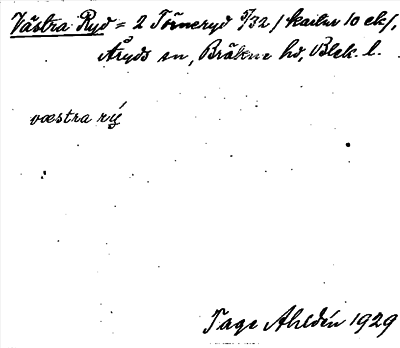 Västra Ryd = 2 Törneryd 5/32 / kallas 10 ek/,
Åryds sn, Bräkne hd, Blek. l.
væstra rẏ
Tage Ahldén 1929